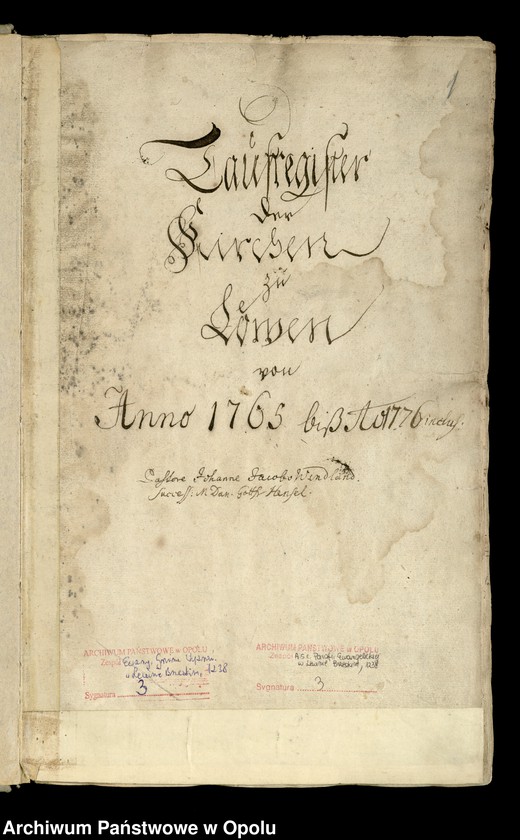 1
Taufregister
der
Kirchen
zu
Löwen
von
Anno 1765 biß Ao 1776 inclus.
Pastore Johanne Jacobo Windland.
Success. M. Dan. Gottfr. Hensel.
ARCHIWUM PAŃSTWOWE w OPOLU
Zespół Ewang. Gmina Wyzn.
w Lewinie Brzeskim, 1238
Sygnatura 3
ARCHIWUM PAŃSTWOWE w OPOLU
Zespół ASC Parafii Ewangelickiej
w Lewinie Brzeskim, 1238
Sygnatura 3
Archiwum Państwowe w Opolu